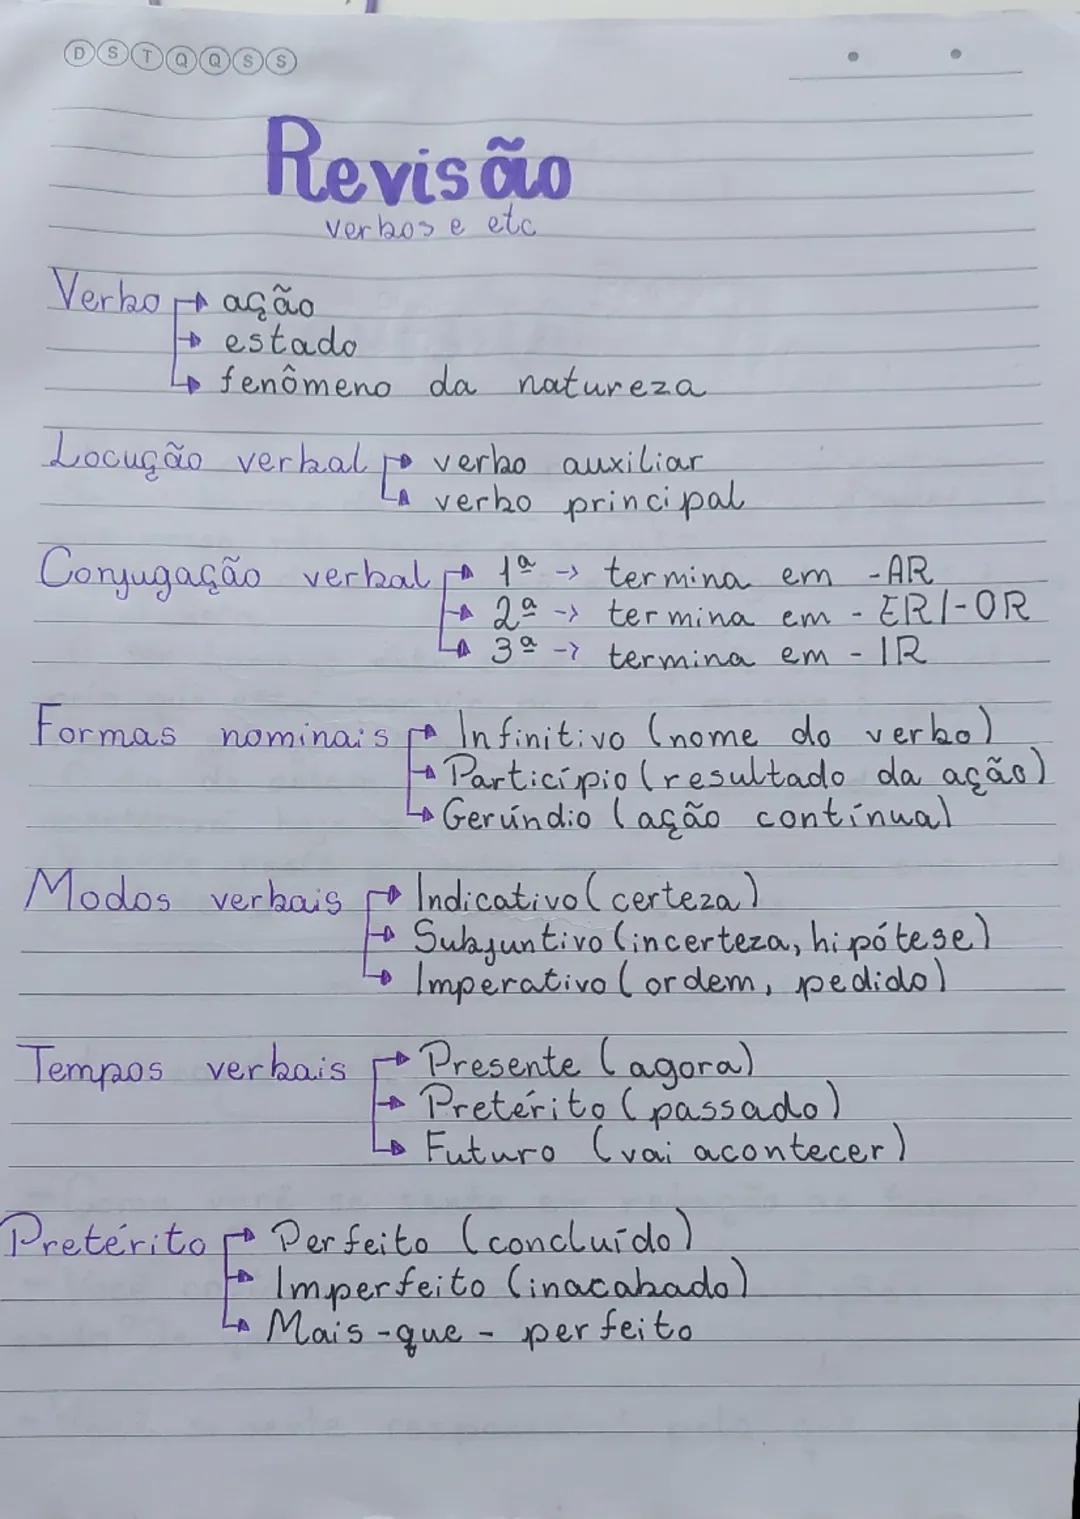 D S T Q Q S S
Revisão
verbos e etc
Verbo → ação
→ estado
→ fenômeno da natureza
Locução verbal → verbo auxiliar
→ verbo principal
Conjugação verbal → 1ª -> termina em -AR
→ 2ª -> termina em -ER/-OR
→ 3ª -> termina em -IR
Formas nominais → Infinitivo (nome do verbo)
→ Particípio (resultado da ação)
→ Gerúndio (ação contínua)
Modos verbais → Indicativo (certeza)
→ Subjuntivo (incerteza, hipótese)
→ Imperativo (ordem, pedido)
Tempos verbais → Presente (agora)
→ Pretérito (passado)
→ Futuro (vai acontecer)
Pretérito → Perfeito (concluído)
→ Imperfeito (inacabado)
→ Mais-que-perfeito